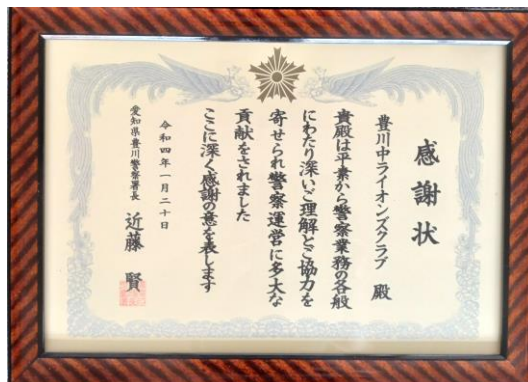 感謝状
豊川中ライオンズクラブ 殿
貴殿は平素から警察業務の各般
にわたり深いご理解とご協力を
寄せられ警察運営に多大な
貢献をされました
ここに深く感謝の意を表します
令和四年一月二十日
愛知県豊川警察署長 近藤 賢